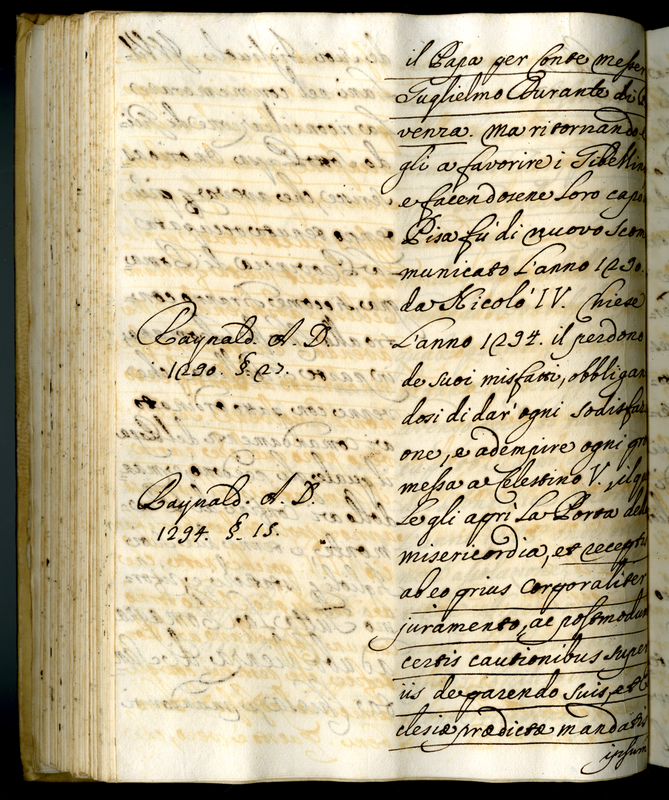 il Papa per conte messer
Guglielmo Durante di
venza. ma ritornando
gli a favorire i Gibellin
e facendosene loro capo
Pisa fù di nuovo scom
municato l'anno 1290.
da Nicolò IV. Chiese
l'anno 1294. il perdono
de suoi misfatti, obbligan
dosi di dar' ogni sodisfaz
one, e adempire ogni pro
messa a Celestino V., il qua
le gli aprì la Porta della
misericordia, et receptis
ab eo prius corporaliter
juramento, ac postmodum
certis cautionibus super
iis de parendo suis, et E
clesiæ prædictæ mandatis
ipsum
Raynald. A. D.
1290. §. 27.
Raynald. A. D.
1294. §. 15.